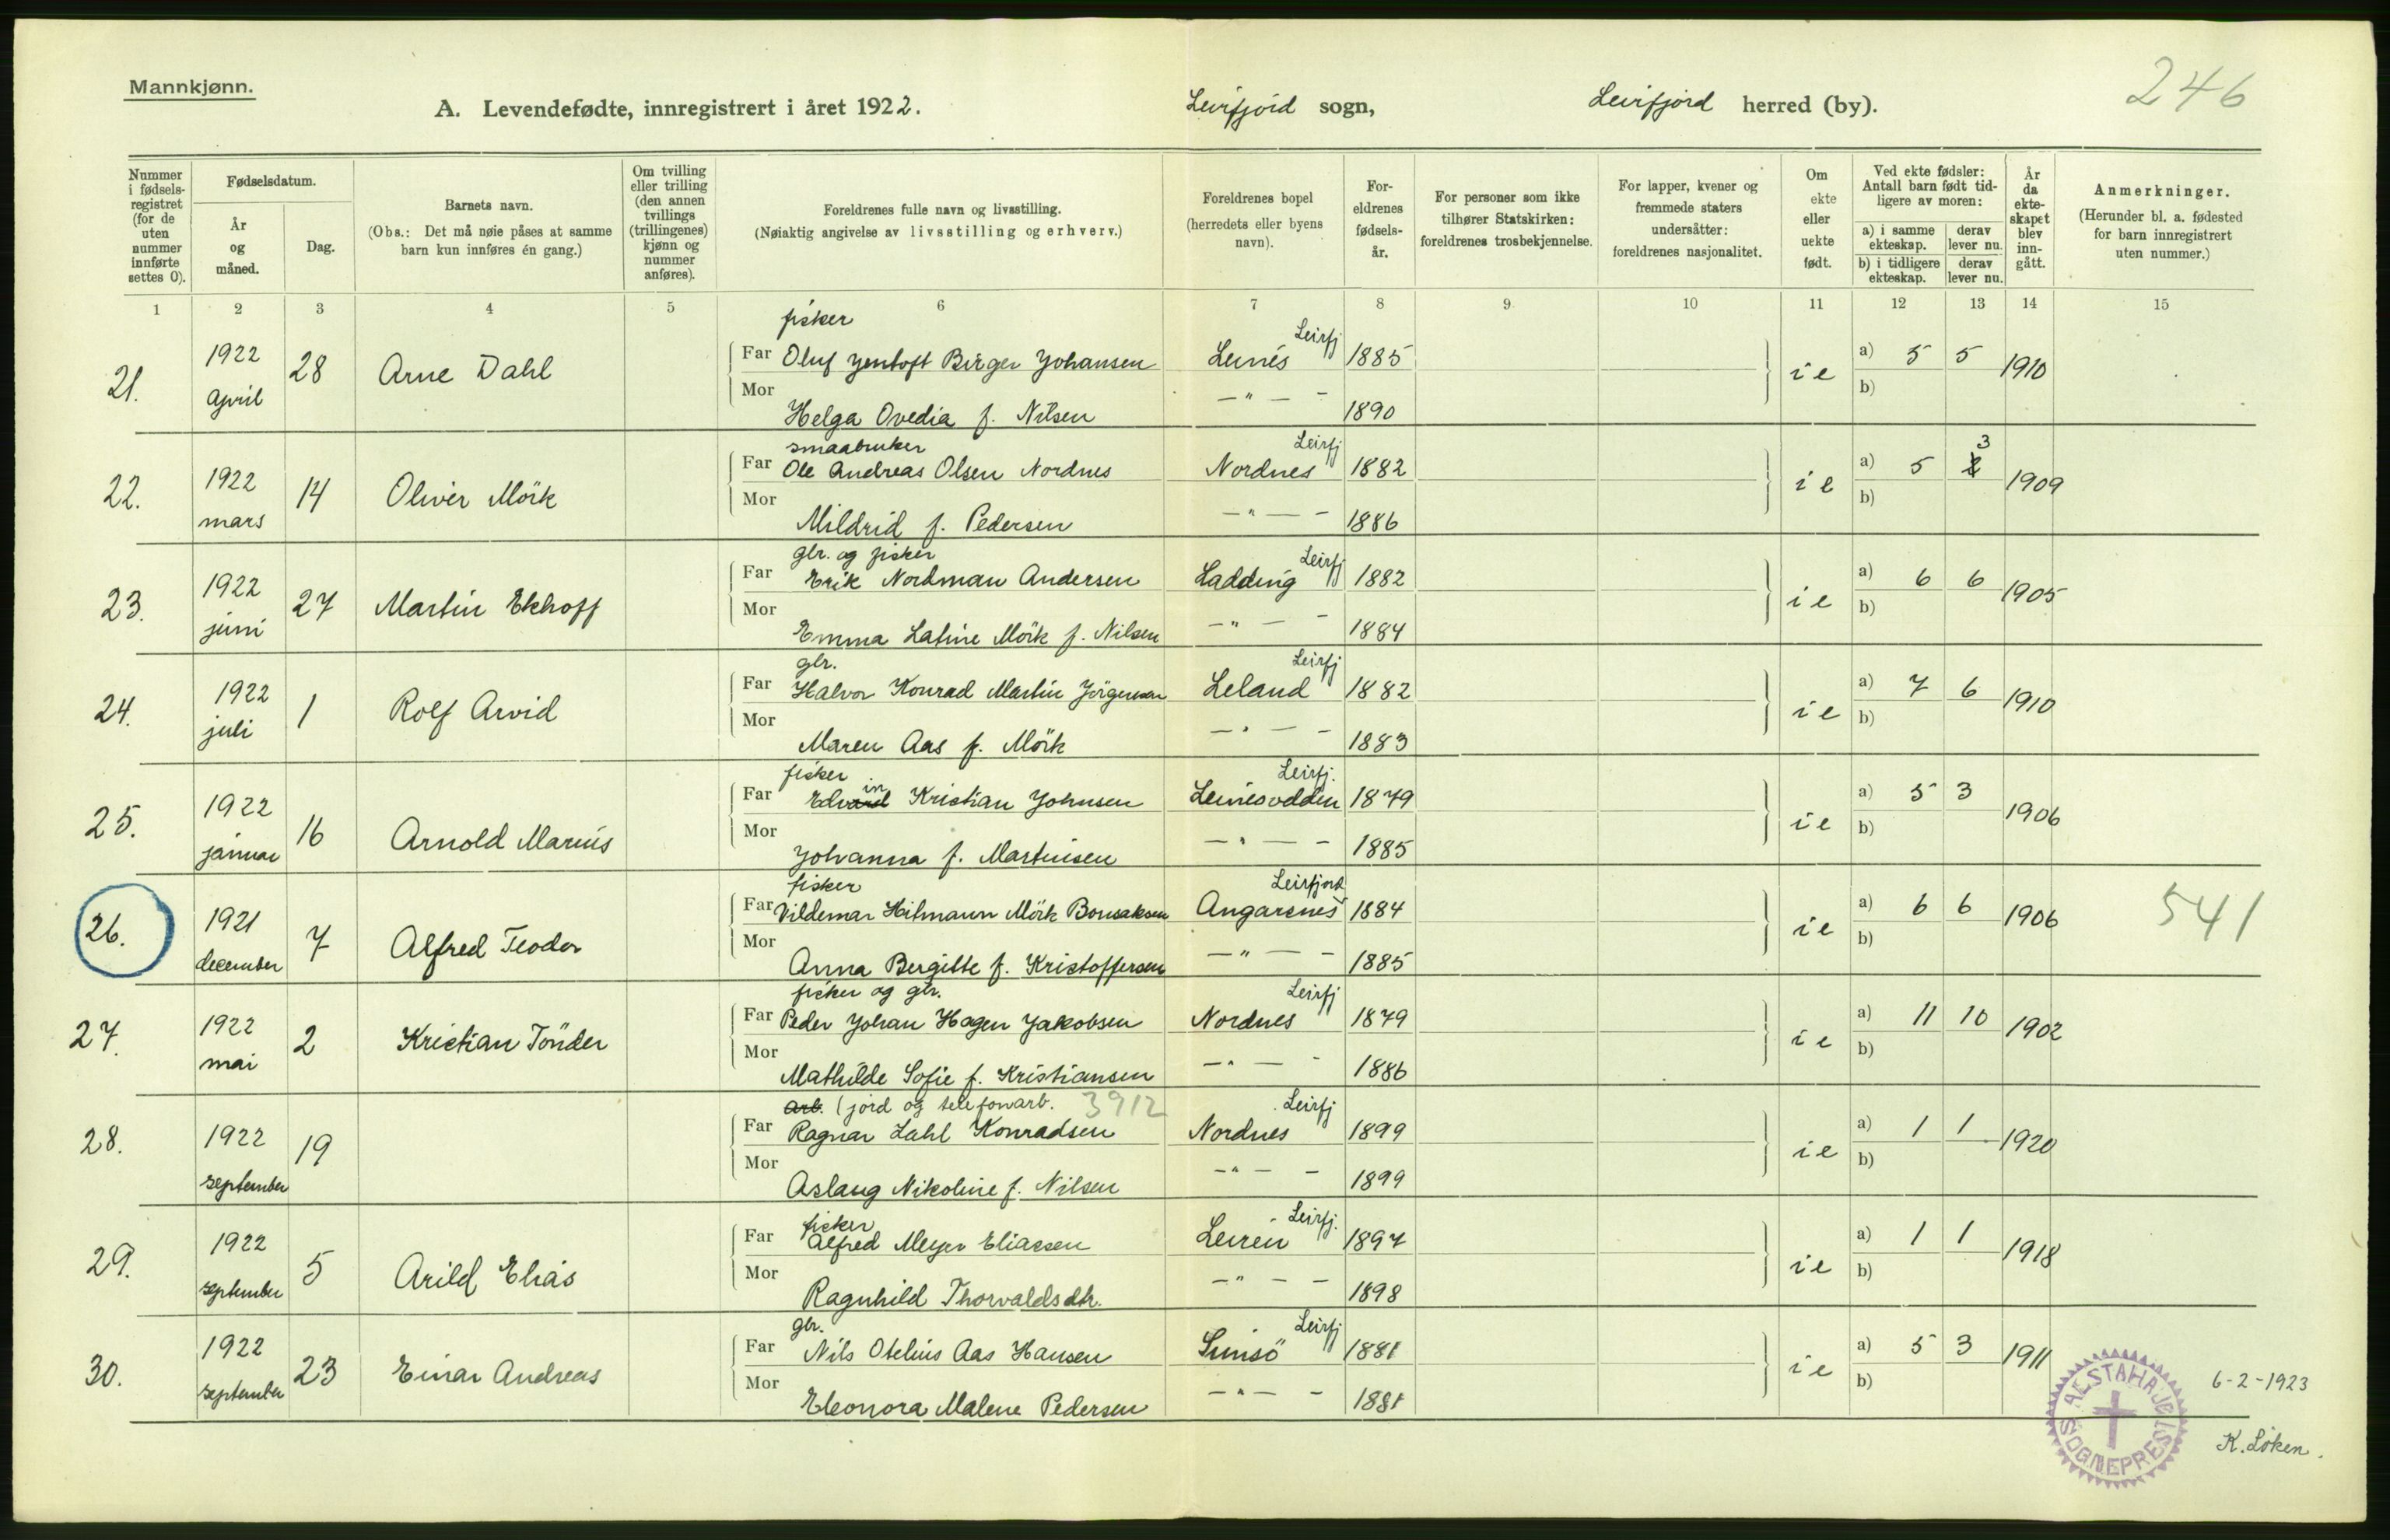 Mannkjønn.
246
A. Levendefødte, innregistrert i året 1922.
Leirfjord sogn,
Leirfjord herred (by).
Nummer i fødsels-registret (for de uten nummer innførte settes 0).
Fødselsdatum.
År og måned.
Dag.
Barnets navn.
(Obs.: Det må nøie påses at samme barn kun innføres én gang.)
Om tvilling eller trilling (den annen tvillings (trillingenes) kjønn og nummer anføres).
Foreldrenes fulle navn og livsstilling.
(Nøiaktig angivelse av livsstilling og erhverv.)
Foreldrenes bopel
(herredets eller byens navn).
For-eldrenes fødsels-år.
For personer som ikke tilhører Statskirken: foreldrenes trosbekjennelse.
For lapper, kvener og fremmede staters undersåtter: foreldrenes nasjonalitet.
Om ekte eller uekte født.
Ved ekte fødsler: Antall barn født tid-ligere av moren:
a) i samme ekteskap. derav lever nu.
b) i tidligere ekteskap. derav lever nu.
År da ekte-skapet blev inn-gått.
Anmerkninger.
(Herunder bl. a. fødested for barn innregistrert uten nummer.)
1 2 3 4 5 6 7 8 9 10 11 12 13 14 15
fisker Leirfj
21. 1922 april 28 Arne Dahl Far Oluf Jentoft Birger Johansen Leines 1885 i e a) 5 5 1910
Mor Helga Ovedia f. Nilsen — " — - 1890 b)
smaabruker Leirfj
22. 1922 mars 14 Oliver Mörk Far Ole Andreas Olsen Nordnes Nordnes 1882 i e a) 5 3 1909
Mor Mildrid f. Pedersen — " — - 1886 b)
gbr. og fisker Leirfj
23. 1922 juni 27 Martin Ekhoff Far Erik Nordman Andersen Ladding 1882 i e a) 6 6 1905
Mor Emma Latine Mörk f. Nilsen — " — - 1884 b)
gbr. Leirfj
24. 1922 juli 1 Rolf Arvid Far Halvor Konrad Martin Jörgensen Leland 1882 i e a) 7 6 1910
Mor Maren Aas f. Mörk — " — - 1883 b)
fisker Leirfj.
25. 1922 januar 16 Arnold Marius Far Edvin Kristian Johnsen Leinesodden 1879 i e a) 5 3 1906
Mor Johanna f. Martinsen — " — - 1885 b)
fisker Leirfjord
26. 1921 december 7 Alfred Teodor Far Vildemar Hitmann Mörk Bonsaksen Angarsnes 1884 i e a) 6 6 1906 541
Mor Anna Bergitte f. Kristoffersen — " — - 1885 b)
fisker og gbr. Leirfj
27. 1922 mai 2 Kristian Tönder Far Peder Johan Hagen Jakobsen Nordnes 1879 i e a) 11 10 1902
Mor Mathilde Sofie f. Kristiansen — " — - 1886 b)
arb. (jord og telefonarb. 3912 Leirfj
28. 1922 september 19 Far Ragnar Dahl Konradsen Nordnes 1899 i e a) 1 1 1920
Mor Aslaug Nikoline f. Nilsen — " — - 1899 b)
fisker Leirfj.
29. 1922 september 5 Arild Elias Far Alfred Meyer Eliassen Leiren 1897 i e a) 1 1 1918
Mor Ragnhild Thorvaldsdtr. — " — - 1898 b)
gbr. Leirfj
30. 1922 september 23 Einar Andreas Far Nils Otelius Aas Hansen 1881 i e a) 5 3 1911
Mor Eleonora Malene Pedersen — " — - 1881 b)
ALSTAHAUG SOGNEPREST
6-2-1923
K. Löken.